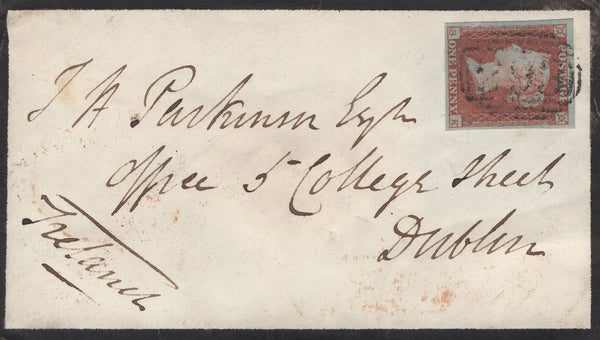 POSTAGE
ONE PENNY
S
E
J H Parkinson Esqre
Office 5 College Street
Dublin
Ireland